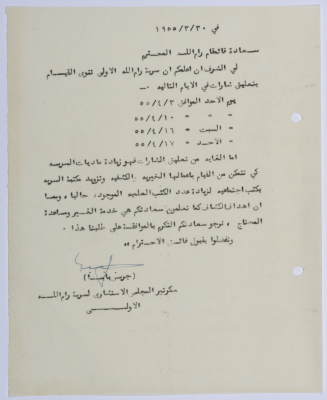 في ٣٠/٣/١٩٥٥
سعادة قائمقام رام الله المحترم
لي الشرف ان اعلمكم ان سرية رام الله الاولى تنوى القيام
بتعليق شارات في الايام التالية :-
يوم الاحد الموافق ٥٥/٤/٣
" " " ٥٥/٤/١٠
" السبت " ٥٥/٤/١٦
" الاحد " ٥٥/٤/١٧
اما الغاية من تعليق الشارات فهو زيادة ماديات السرية
كي تتمكن من القيام باعمالها الخيرية والكشفية وتزويد مكتبة السرية
بكتب اجتماعية لزيادة عدد الكتب العلمية الموجودة حاليا ، وبما
ان اهداف الكشاف كما تعلمون سعادتكم هي خدمة الغير ومساعدة
المحتاج ، نرجو سعادتكم التكرم بالموافقة على طلبنا هذا .
وتفضلوا بقبول فائق الاحترام ،،
سكرتير المجلس الاستشارى لسرية رام الله
الاولى